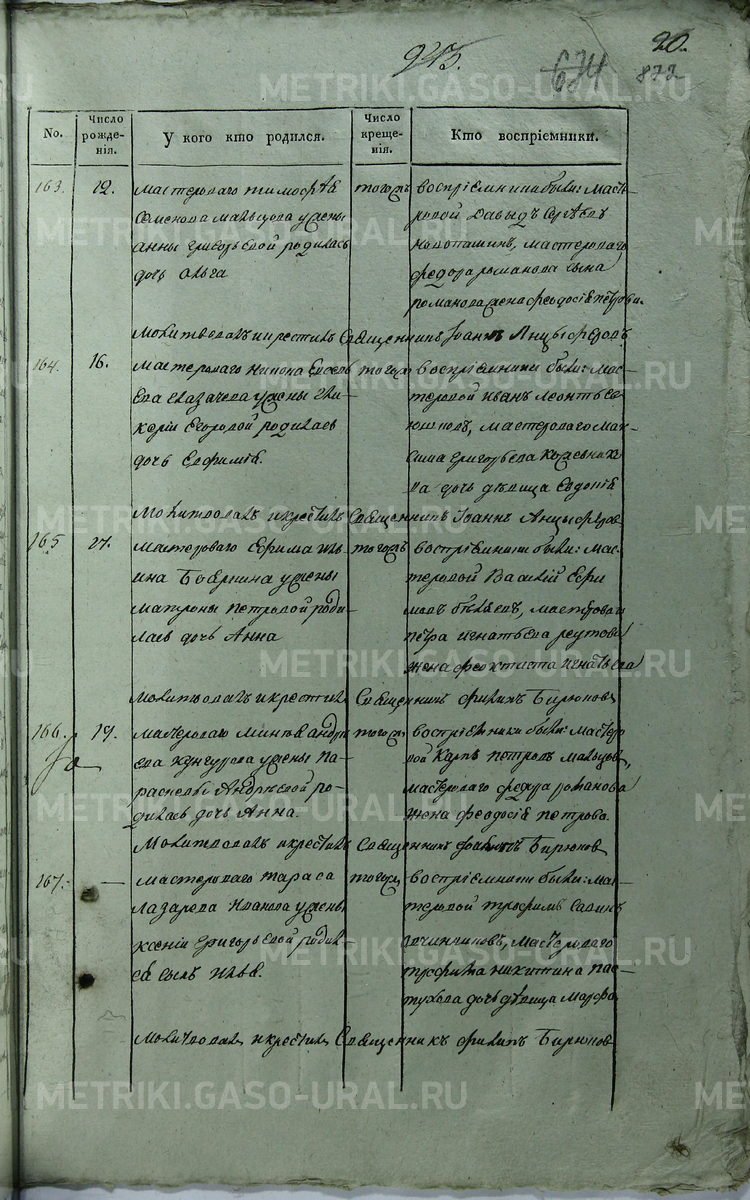 243.
674
20.
872
No.
Число рожде-нія.
У кого кто родился.
Число креще-нія.
Кто воспріемники.
163.
12.
мастероваго тимофѣя
семенова мальцова ужены
анны григорьевой родилась
дочь ольга
тогожъ
воспріемники были: Масте-
ровой Давыдъ Сергѣевъ
мастероваго
федора романова сына
романова жена феодосія петрова
Молитвовалъ и крестилъ Священникъ Іоаннъ Анцыферовъ
164.
16.
мастероваго
ева казачева ужены гли-
керіи Егоровой родилась
дочь Евфимія.
тогожъ
воспріемники были: мас-
теровой иванъ леонтьевъ
мастероваго мак-
сима григорьева
ва дочь дѣвица Евдокія
Молитвовалъ и крестилъ Священникъ Іоаннъ Анцыферовъ
165
27.
мастероваго Ефима иль-
ина Бобкина ужены
матроны петровой роди-
лась дочь Анна
тогожъ
воспріемники были: мас-
теровой Василій Ефи
мовъ мастероваго
петра игнатьева реутова
жена феоктиста игнатьева
молитвовалъ и крестилъ Священникъ филипъ Бирюковъ
166.
19.
мастероваго андре
ева кунгурова ужены па-
расковьи Андреевой ро-
дилась дочь Анна.
тогожъ
воспріемники были: мастеро
вой Карпъ петровъ мальцовъ,
мастероваго федора романова
жена феодосія петрова.
Молитвовалъ и крестилъ Священникъ филипъ Бирюковъ
167.
—
мастероваго тараса
лазарева иванова ужены
ксеніи григорьевой родил-
ся сынъ илья.
тогожъ
воспріемники были: мас-
теровой трофимъ савинъ
овчинниковъ, мастероваго
трофима никитина пас-
тухова дочь дѣвица марфа
молитвовалъ и крестилъ Священникъ филипъ Бирюковъ
METRIKI.GASO-URAL.RU